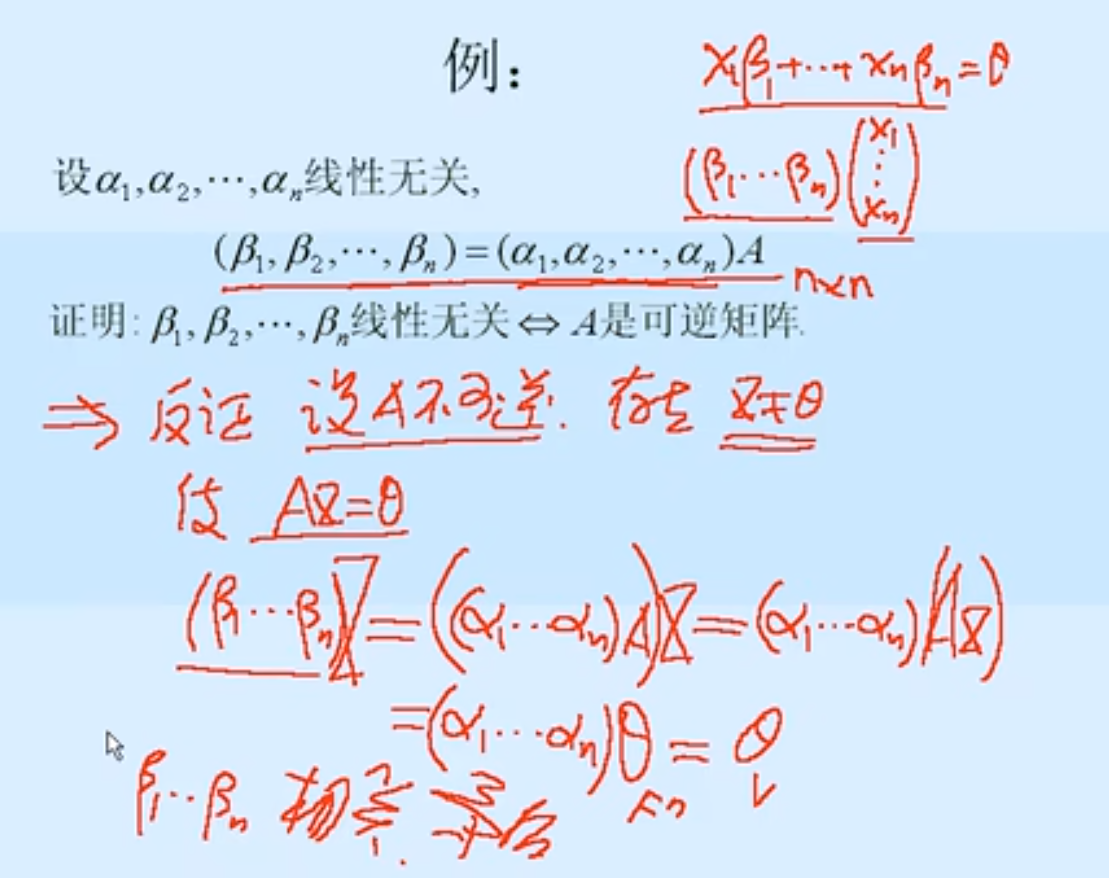 例：
x₁β₁+⋯+xₙβₙ=θ
(β₁⋯βₙ)(x₁⋮xₙ)
设α₁,α₂,⋯,αₙ线性无关,
(β₁,β₂,⋯,βₙ)=(α₁,α₂,⋯,αₙ)A n×n
证明: β₁,β₂,⋯,βₙ线性无关⇔A是可逆矩阵.
⇒ 反证 设A不可逆. 存在 X≠θ
使 AX=θ
(β₁⋯βₙ)X=((α₁⋯αₙ)A)X=(α₁⋯αₙ)(AX)
=(α₁⋯αₙ)θ_Fⁿ=θ_V
β₁⋯βₙ 相关. 矛盾